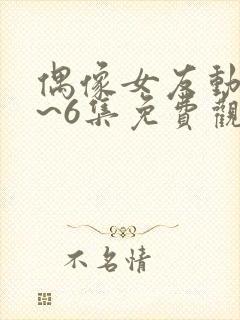 偶像女友動
~6集免費觀
不名情